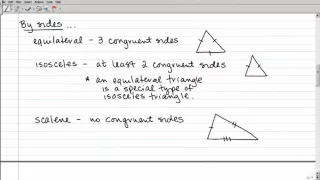 By sides ...
equilateral - 3 congruent sides
isosceles - at least 2 congruent sides
* an equilateral triangle
is a special type of
isosceles triangle.
scalene - no congruent sides